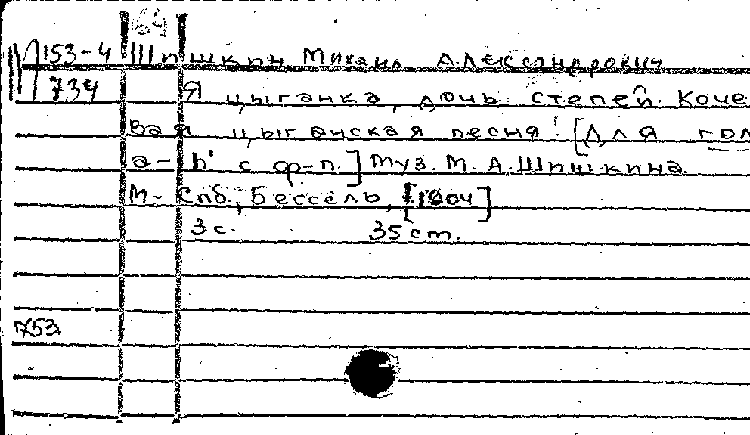 64
153-4 Шишкин, Михаил Александрович
734 Я цыганка, дочь степей. Коче
вая цыганская песня. [Для гол
a-h' с ф-п.] Муз. М. А. Шишкина
М.-Спб., Бессель, [1904]
3 с. 35 см.
753